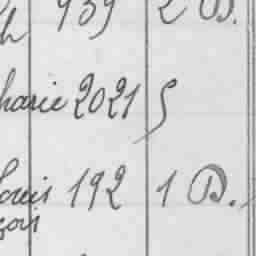 h 939 2 D.
harie 2021 5
Louis 192 1 D.
çois